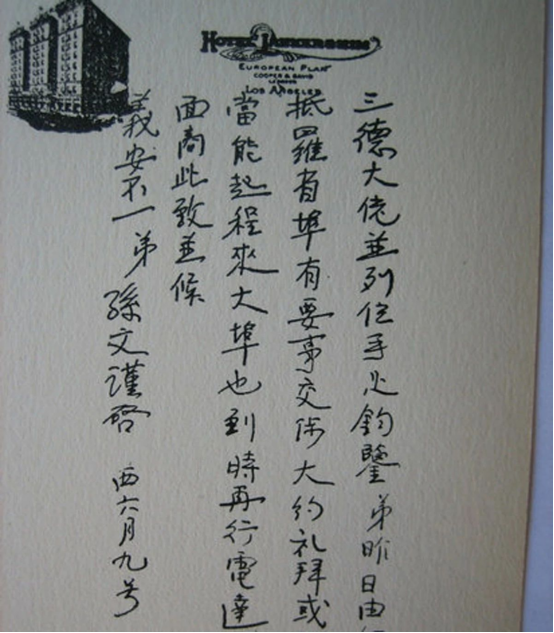 HOTEL LANKERSHIM
EUROPEAN PLAN
COOPER & DAVIS
LESSEES
LOS ANGELES
三德大佬並列位手足鈞鑒 弟昨日由
抵羅省埠有要事交涉大約礼拜或
當能起程來大埠也到時再行電達
面商此致並候
義安不一 弟 孫文謹啓 西六月九号